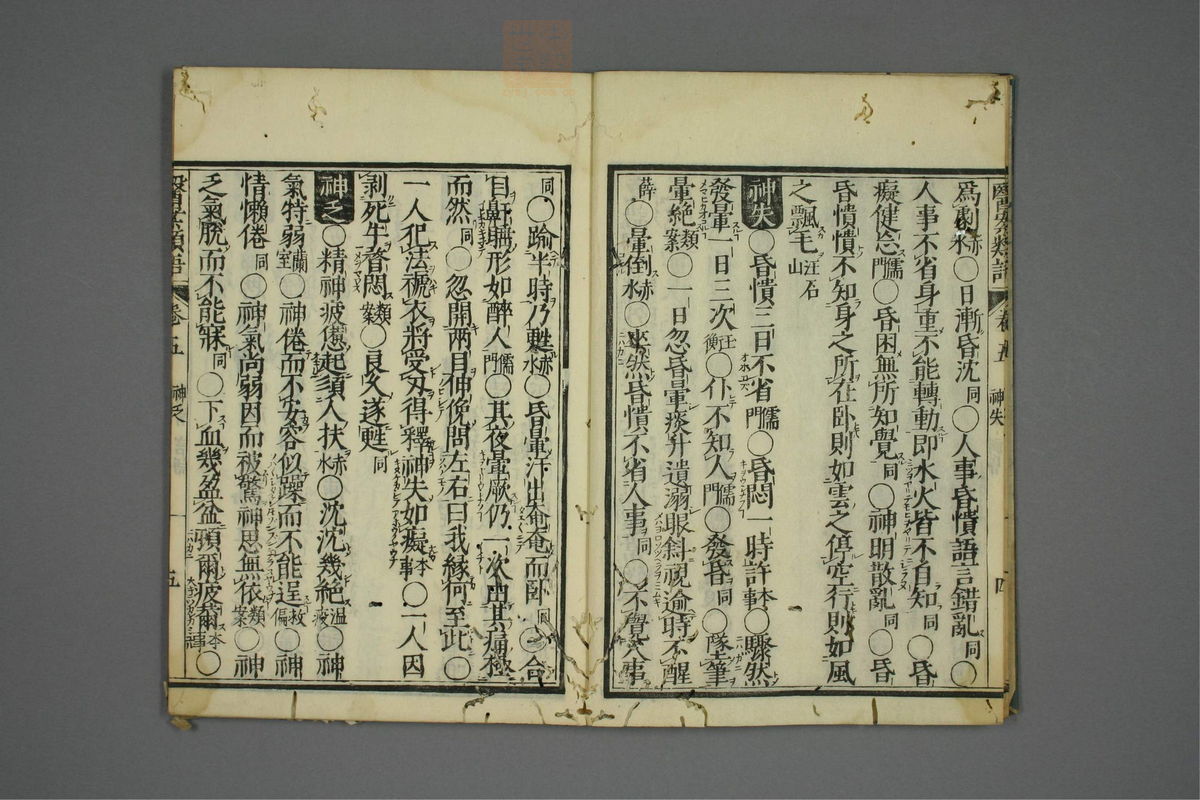 為劇赤水〇日漸昏沈同〇人事昏憒語言錯亂同〇
人事不省身重不能轉動即水火皆不自知同〇昏
癡健忘儒門〇昏困無所知覺同〇神明散亂同〇昏
昏憒憒不知身之所在臥則如雲之停空行則如風
之飄毛汪石山
神失〇昏憒三日不省儒門〇昏悶一時許本事〇驟然
發暈一日三次汪衡〇仆不知人儒門〇發昏同〇墜筆
暈絕類案〇一日忽昏暈痰升遺溺眼斜視逾時不醒
薛〇暈倒赤水〇卒然昏憒不省人事同〇不覺人事
同〇踰半時乃甦赤水〇昏暈汗出奄奄而臥同〇合
目鼾睡形如醉人儒門〇其夜暈厥仍一次由其痛極
而然同〇忽開兩目伸俛問左右曰我緣何至此〇
一人犯法褫衣將受刃得釋神失如癡本事〇一人因
剥死牛瞀悶類案〇良久遂甦同
神乏〇精神疲憊起須人扶赤水〇沈沈幾絕温疫〇神
氣特弱蘭室〇神倦而不安客似躁而不能逞救偏〇神
情懶倦同〇神氣尚弱因而被驚神思無依類案〇神
乏氣脫而不能寐同〇下血幾盈盆頓爾疲薾本事〇
神失
四
卷五
神乏
五